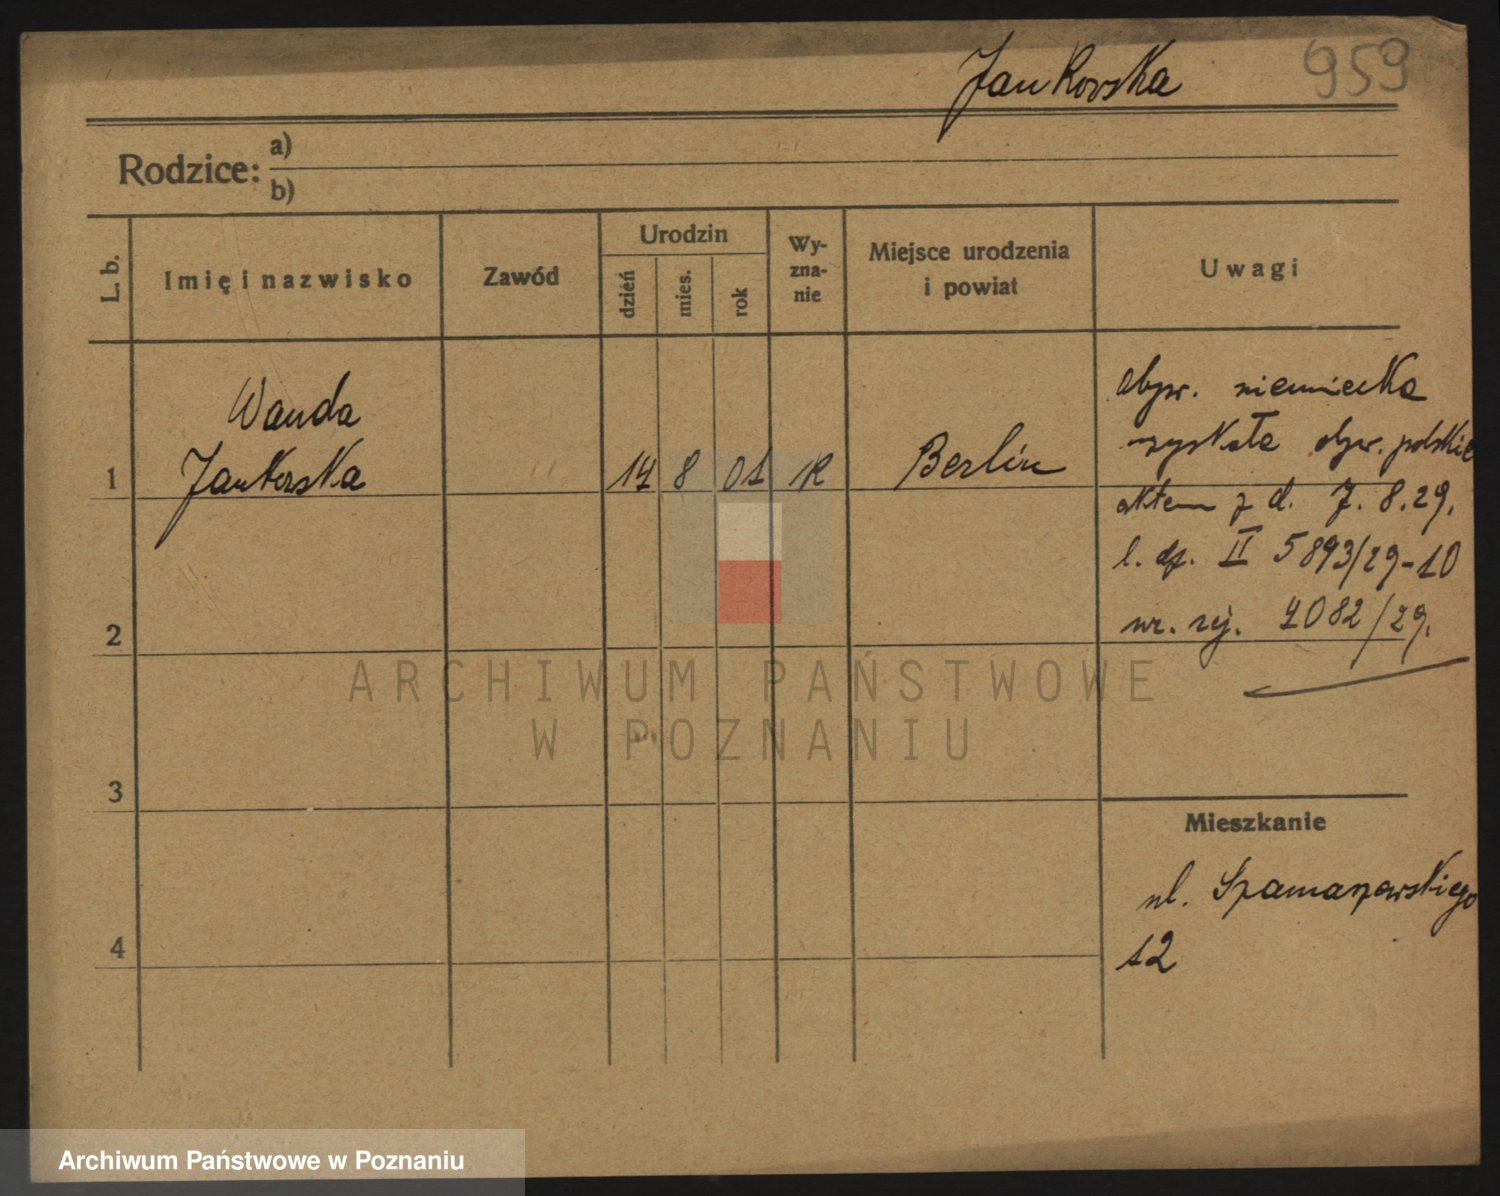 Jankowska 959
Rodzice: a)
b)
L. b. Imię i nazwisko Zawód Urodzin dzień mies. rok Wy-zna-nie Miejsce urodzenia i powiat Uwagi
Wanda
1 Jankowska 14 8 01 R Berlin
obyw. niemiecka
uzyskała obyw. polskie
aktem z d. 7. 8. 29.
l. dz. II 5893/29-10
nr. rej. 1082/29.
2
3
4
Mieszkanie
ul.
12
ARCHIWUM PAŃSTWOWE
W POZNANIU
Archiwum Państwowe w Poznaniu